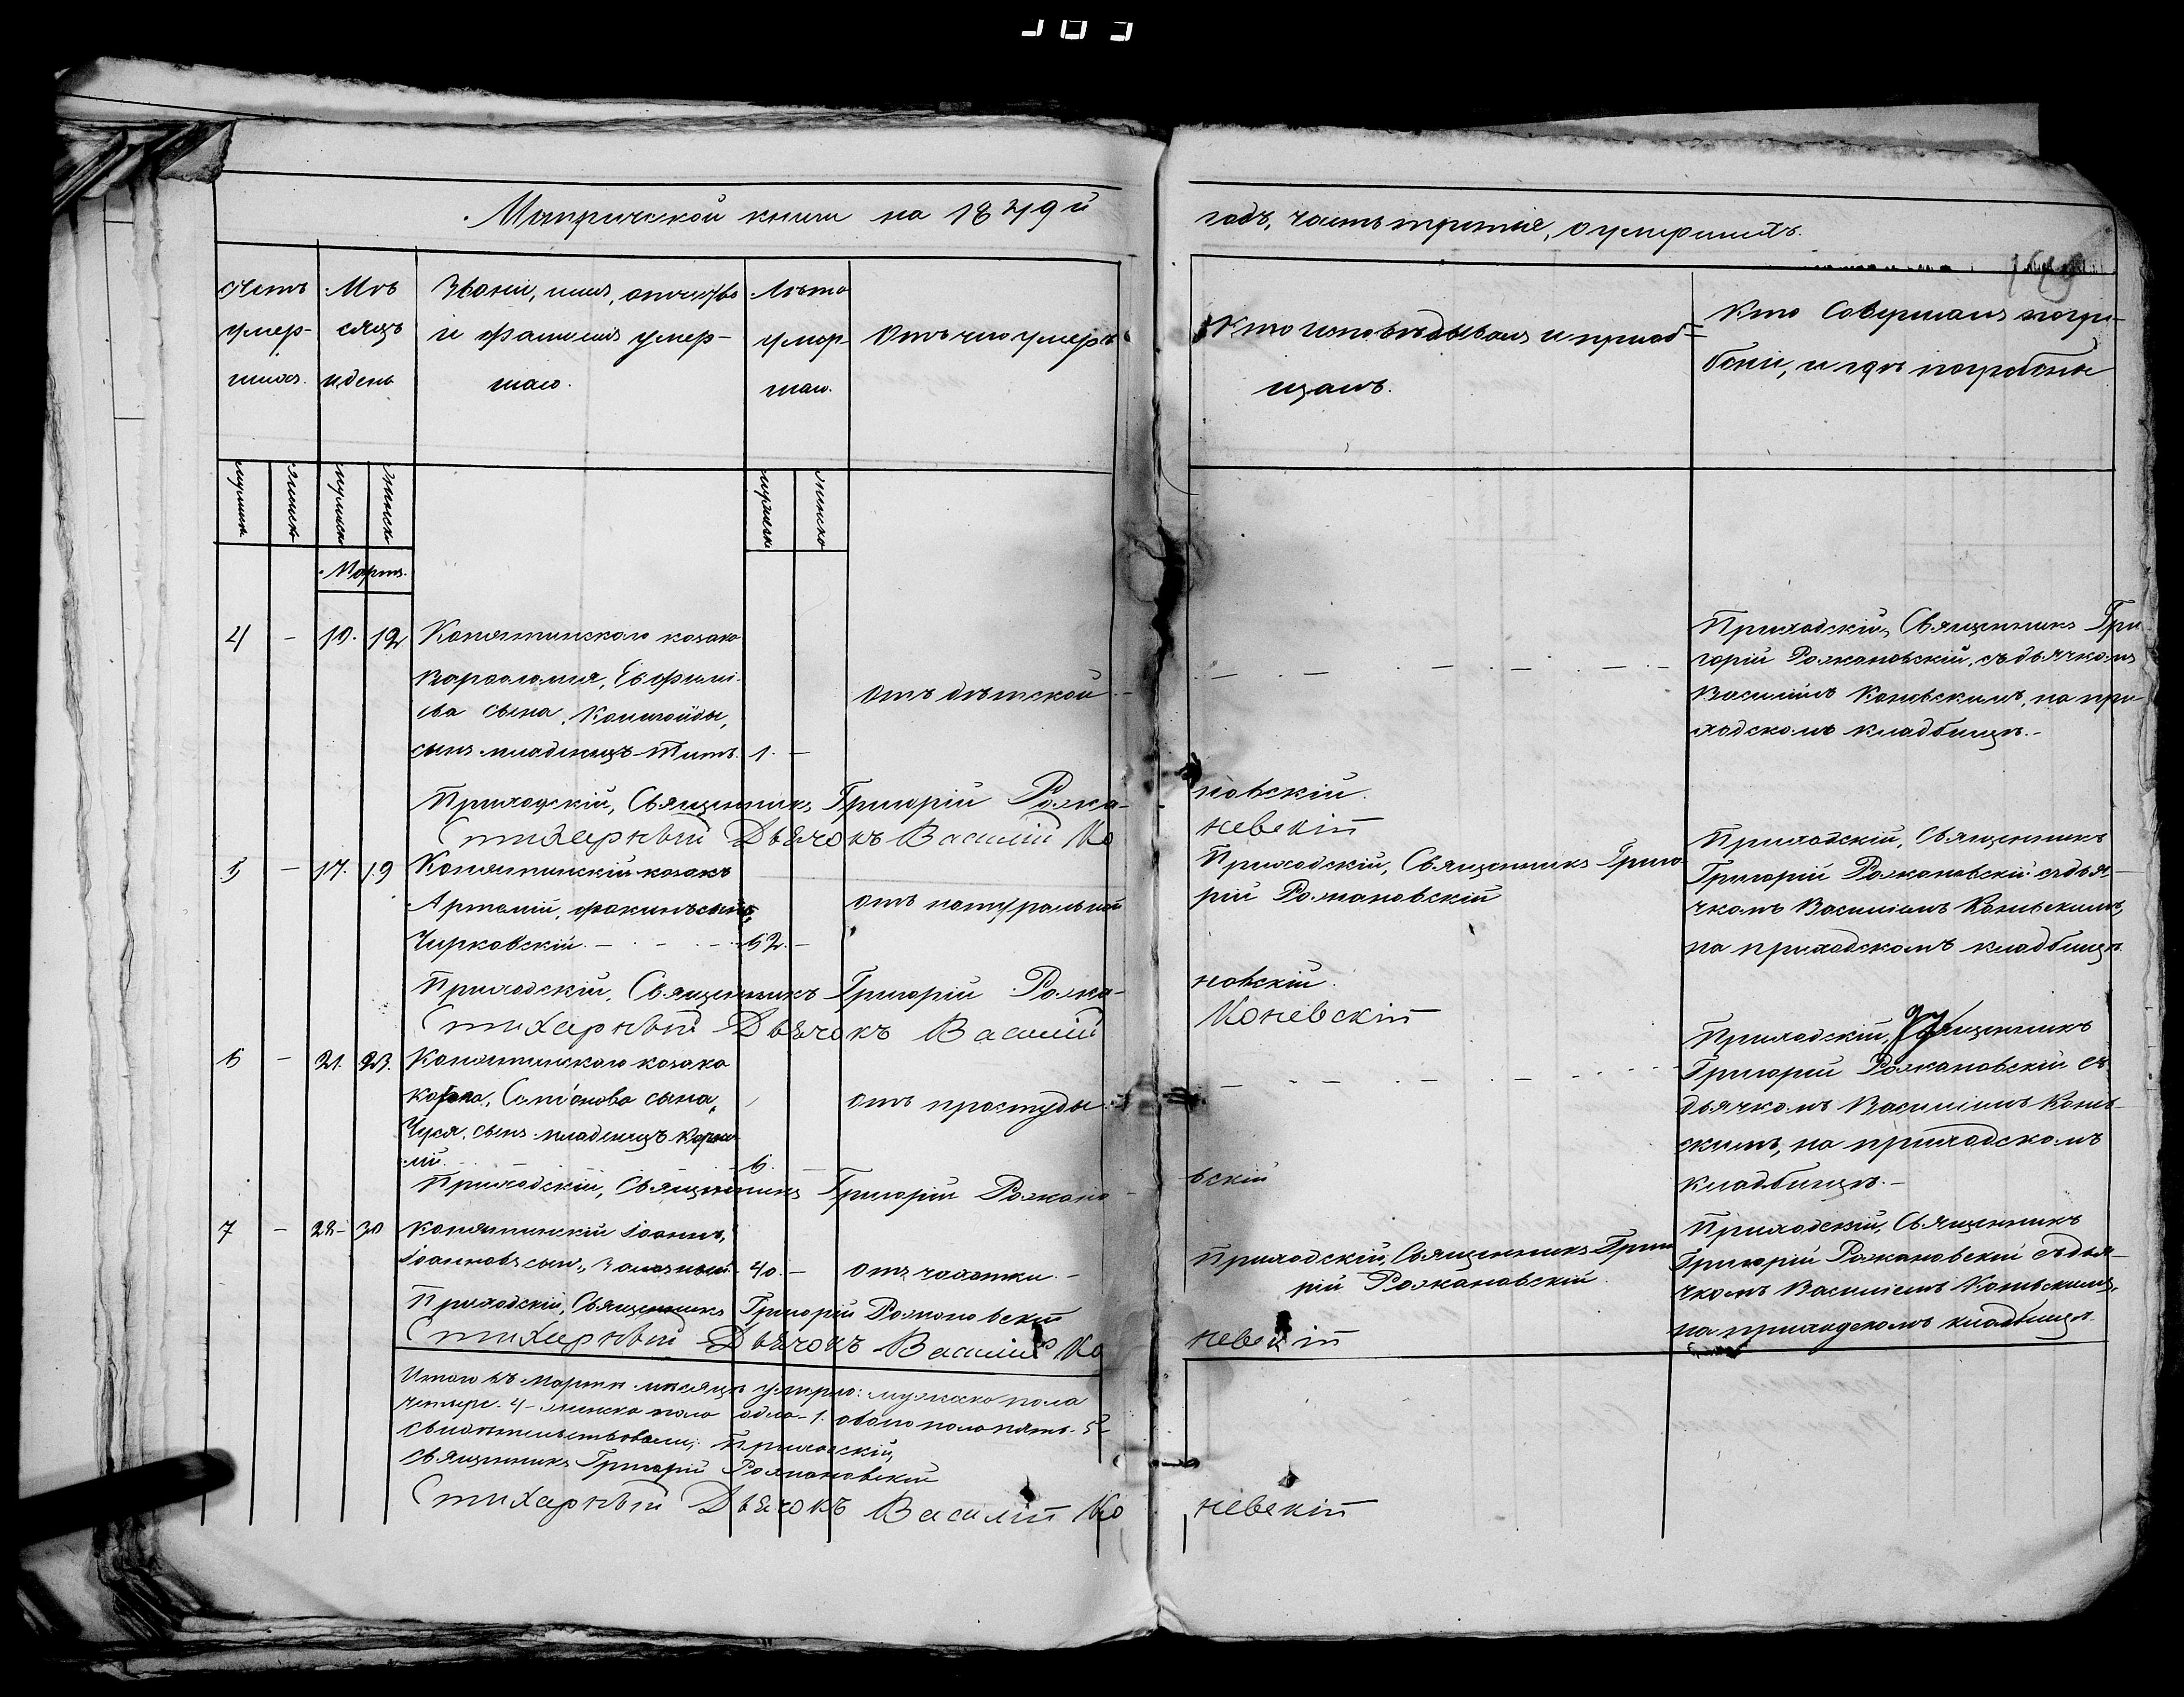 Метрической книги на 1849й
годъ, часть третія, о умершихъ.
Счетъ умер- шихъ.
Мѣ- сяцъ и день
Званіе, имя, отчество
и фамилія умер-
шаго.
Лѣта умер- шаго.
Отъ чего умеръ
Кто исповѣдывалъ и приоб-
щалъ.
Кто совершалъ погре-
беніе, и гдѣ погребены
мужеска
женска
мужеска
женска
мужеска
женска
Мартъ.
4 - 10. 12
козака
Варѳоломея, Евфимі-
ева сына,
сынъ младенецъ Титъ. 1. -
отъ дѣтской
Приходскій, Священникъ Гри
горій Рожановскій, съ дьячкомъ
Василіемъ Коневскимъ, на при
ходскомъ кладбищѣ.-
Приходскій, Священникъ Григорій Рожа-
новскій.
Стихарный Дьячокъ Василій Ко
невскій
5 - 17. 19
козакъ
Артемій, сынъ,
Чирковскій. - 62. -
отъ натуральной
Приходскій, Священникъ Григо
рій Рожановскій
Приходскій, Священникъ
Григорій Рожановскій съ дья-
чкомъ Василіемъ Коневскимъ,
на приходскомъ кладбищѣ.
Приходскій, Священникъ Григорій Рожа-
новскій.
Стихарный Дьячокъ Василій
Коневскій
6 - 21. 23.
козака
сына,
сынъ младенецъ
6.
отъ простуды
Приходскій, Священникъ
Григорій Рожановскій съ
дьячкомъ Василіемъ Конев-
скимъ, на приходскомъ
кладбищѣ.-
Приходскій, Священникъ Григорій Рожано-
вскій
7 - 28- 30
Іоаннъ,
Іоанновъ сынъ, 40. - отъ чахотки. -
Приходскій, Священникъ Григо
рій Рожановскій.
Приходскій, Священникъ
Григорій Рожановскій съ дья-
чкомъ Василіемъ Коневскимъ,
на приходскомъ кладбищѣ.
Приходскій, Священникъ Григорій Рожановскій
Стихарный Дьячокъ Василій Ко
невскій
Итого въ Мартѣ мѣсяцѣ умерло: мужеска пола
четыре. 4 - женска пола одна - 1. обоего пола пять. 5-
Свидѣтельствовали: Приходскій,
Священникъ Григорій Рожановскій
Стихарный Дьячокъ Василій Ко
невскій